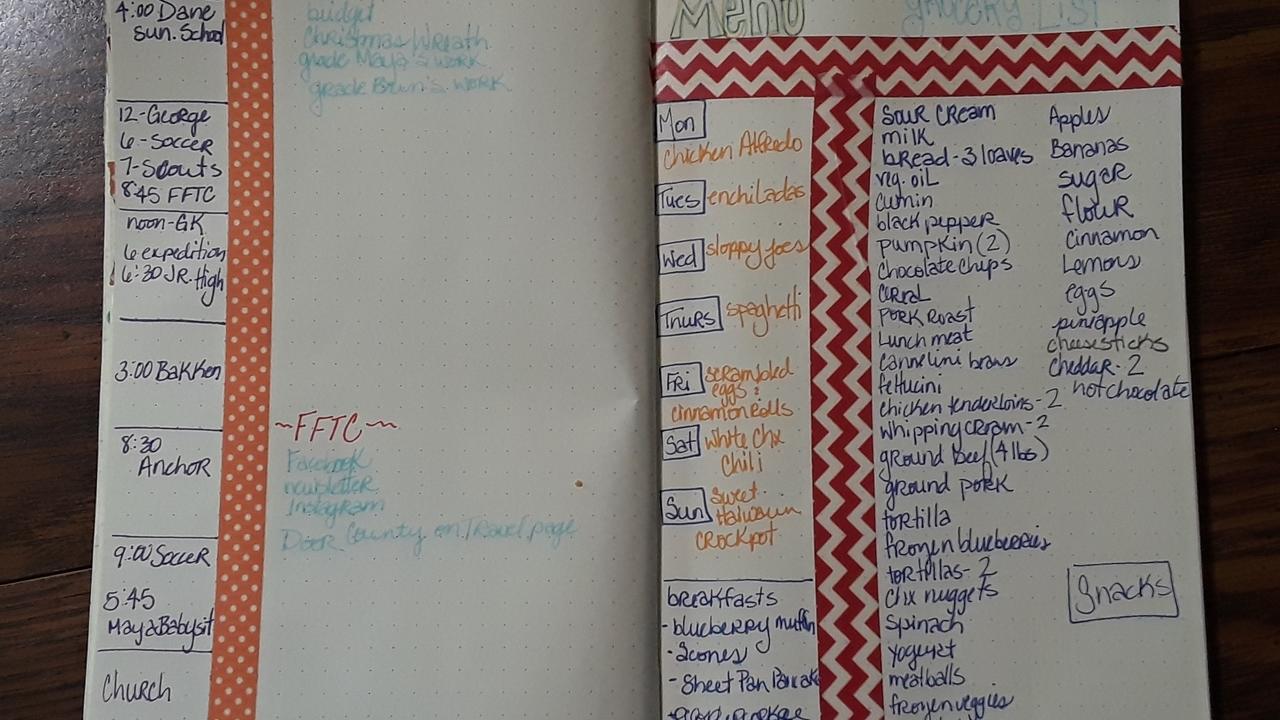 4:00 Dane
Sun. School
12-George
6-Soccer
7-Scouts
8:45 FFTC
noon-GK
6 expedition
6:30 JR. High
3:00 Bakken
8:30
Anchor
9:00 Soccer
5:45
Maya Babysit
Church
budget
Christmas Wreath
grade Maya's work
grade Bruin's work
~FFTC~
Facebook
newsletter
Instagram
Door County on Travel page
Menu
Mon
Chicken Alfredo
Tues enchiladas
Wed sloppy joes
Thurs spaghetti
Fri scrambled
eggs &
cinnamon rolls
Sat White Chx
Chili
Sun Sweet
Crockpot
breakfasts
- blueberry muffin
- Scones
- Sheet Pan Pancake
grocery List
Sour Cream
milk
bread - 3 loaves
veg. oil
Cumin
black pepper
pumpkin (2)
chocolate chips
Pork Roast
Lunch meat
fettucini
chicken tenderloins - 2
whipping cream - 2
ground beef (4 lbs)
ground pork
tortilla
frozen blueberries
tortillas - 2
chx nuggets
spinach
yogurt
meatballs
frozen veggies
Apples
Bananas
sugar
flour
cinnamon
Lemons
eggs
cheesesticks
cheddar - 2
hot chocolate
Snacks